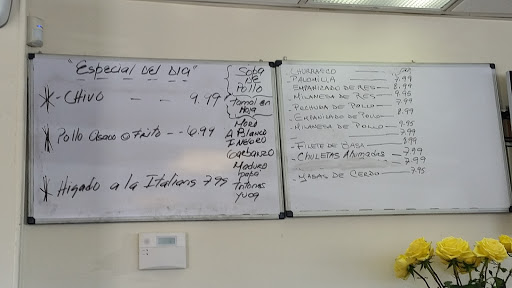 "Especial Del Dia"
- CHIVO - - 9.99
Pollo Asado o Frito - - 6.99
Higado a la Italiana 7.95
Sopa
De
Pollo
Tamal en
Hoja
Moro
A. Blanco
I. Negro
Garbanzo
Maduro
papa
Tostones
Yuca
- CHURRASCO
- PALOMILLA 7.99
EMPANIZADO DE RES 8.99
- MILANESA DE RES 9.95
PECHUGA DE POLLO 7.99
- EMPANIZADO DE POLLO 8.99
- MILANESA DE POLLO 9.95
7.99
- FILETE DE BASA 8.99
- CHULETAS Ahumadas 7.99
7.99
- MASAS DE CERDO 7.95